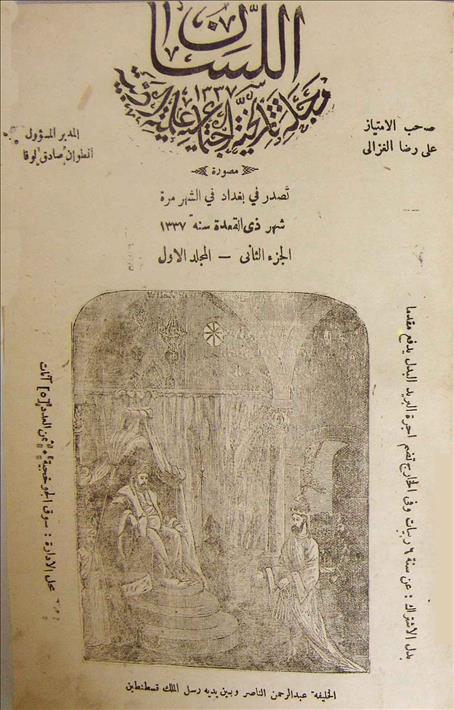 اللسان
١٣٣٧
مجلة تاريخية اجتماعية علمية ادبية
صحب الامتياز
على رضا الغزالى
المدير المسؤول
انطوان صادق لوقا
مصورة
تصدر في بغداد في الشهر مرة
شهر ذى القعدة سنة ١٣٣٧
الجزء الثانى — المجلد الاول
بدل الاشتراك : عن سنة ٦ ربيات وفى الخارج تضم اجرة البريد البدل يدفع مقدما
محل الادارة : سوق الجوخجية • ثمن العدد [٥] آنات
الخليفة عبدالرحمن الناصر وبين يديه رسل الملك قسطنطين